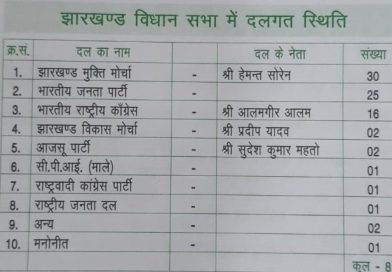 झारखण्ड विधान सभा में दलगत स्थिति
क्र.सं. दल का नाम दल के नेता संख्या
1. झारखण्ड मुक्ति मोर्चा - श्री हेमन्त सोरेन 30
2. भारतीय जनता पार्टी - 25
3. भारतीय राष्ट्रीय काँग्रेस - श्री आलमगीर आलम 16
4. झारखण्ड विकास मोर्चा - श्री प्रदीप यादव 02
5. आजसू पार्टी - श्री सुदेश कुमार महतो 02
6. सी.पी.आई. (माले) - 01
7. राष्ट्रवादी कांग्रेस पार्टी - 01
8. राष्ट्रीय जनता दल - 01
9. अन्य - 02
10. मनोनीत - 01
कुल - 8